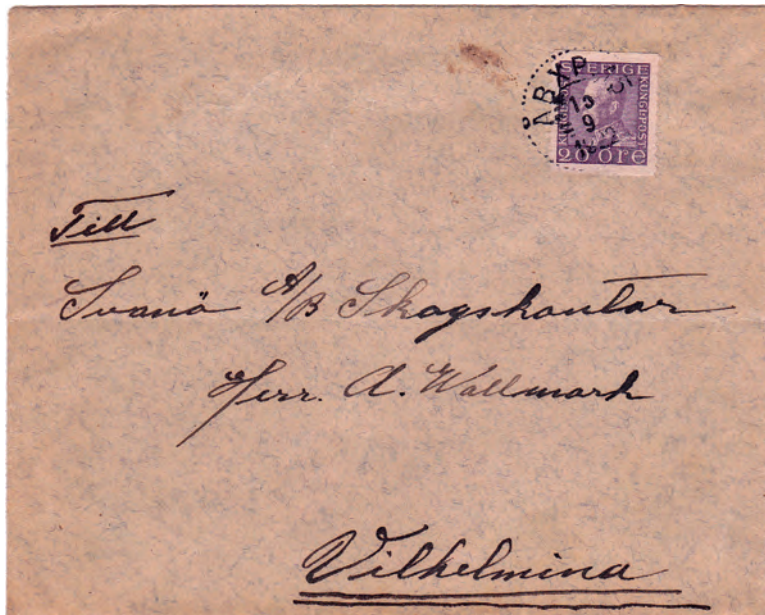 SVERIGE
KUNGL.POST
20 ÖRE
Till
Svanö A/B Skogskontor
Herr. A. Wallmark
Vilhelmina